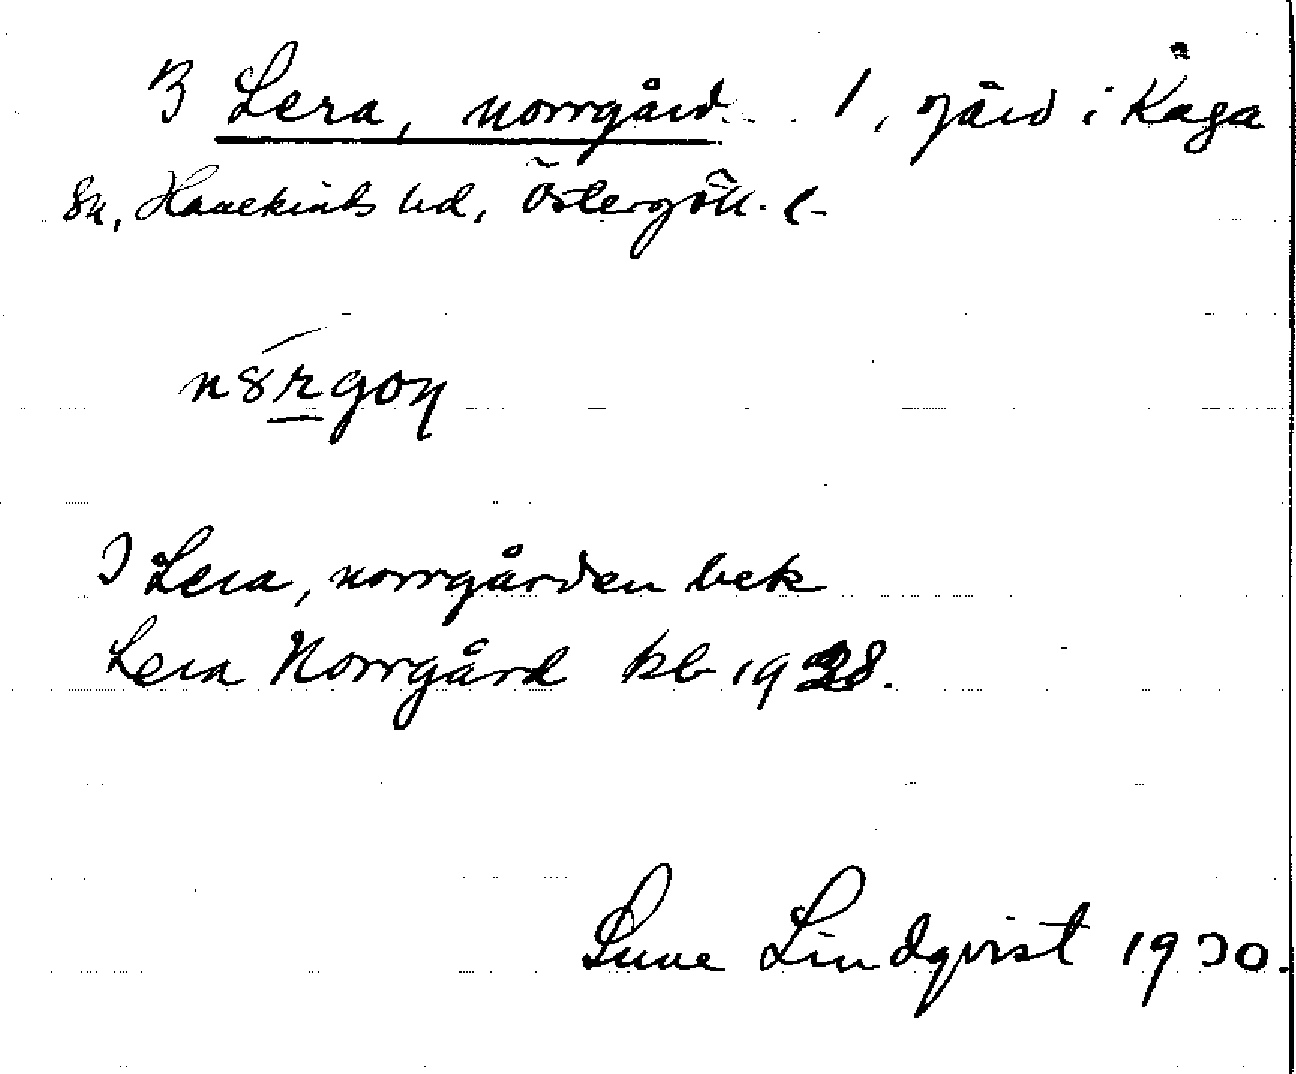 3 Lera, norrgård 1, gård i Kåga
sn, Hanekinds hd, Östergötl. l.
n8rgoŋ
3 Lera, norrgården bek
Lera Norrgård kb 1928.
Sune Lindqvist 1930.